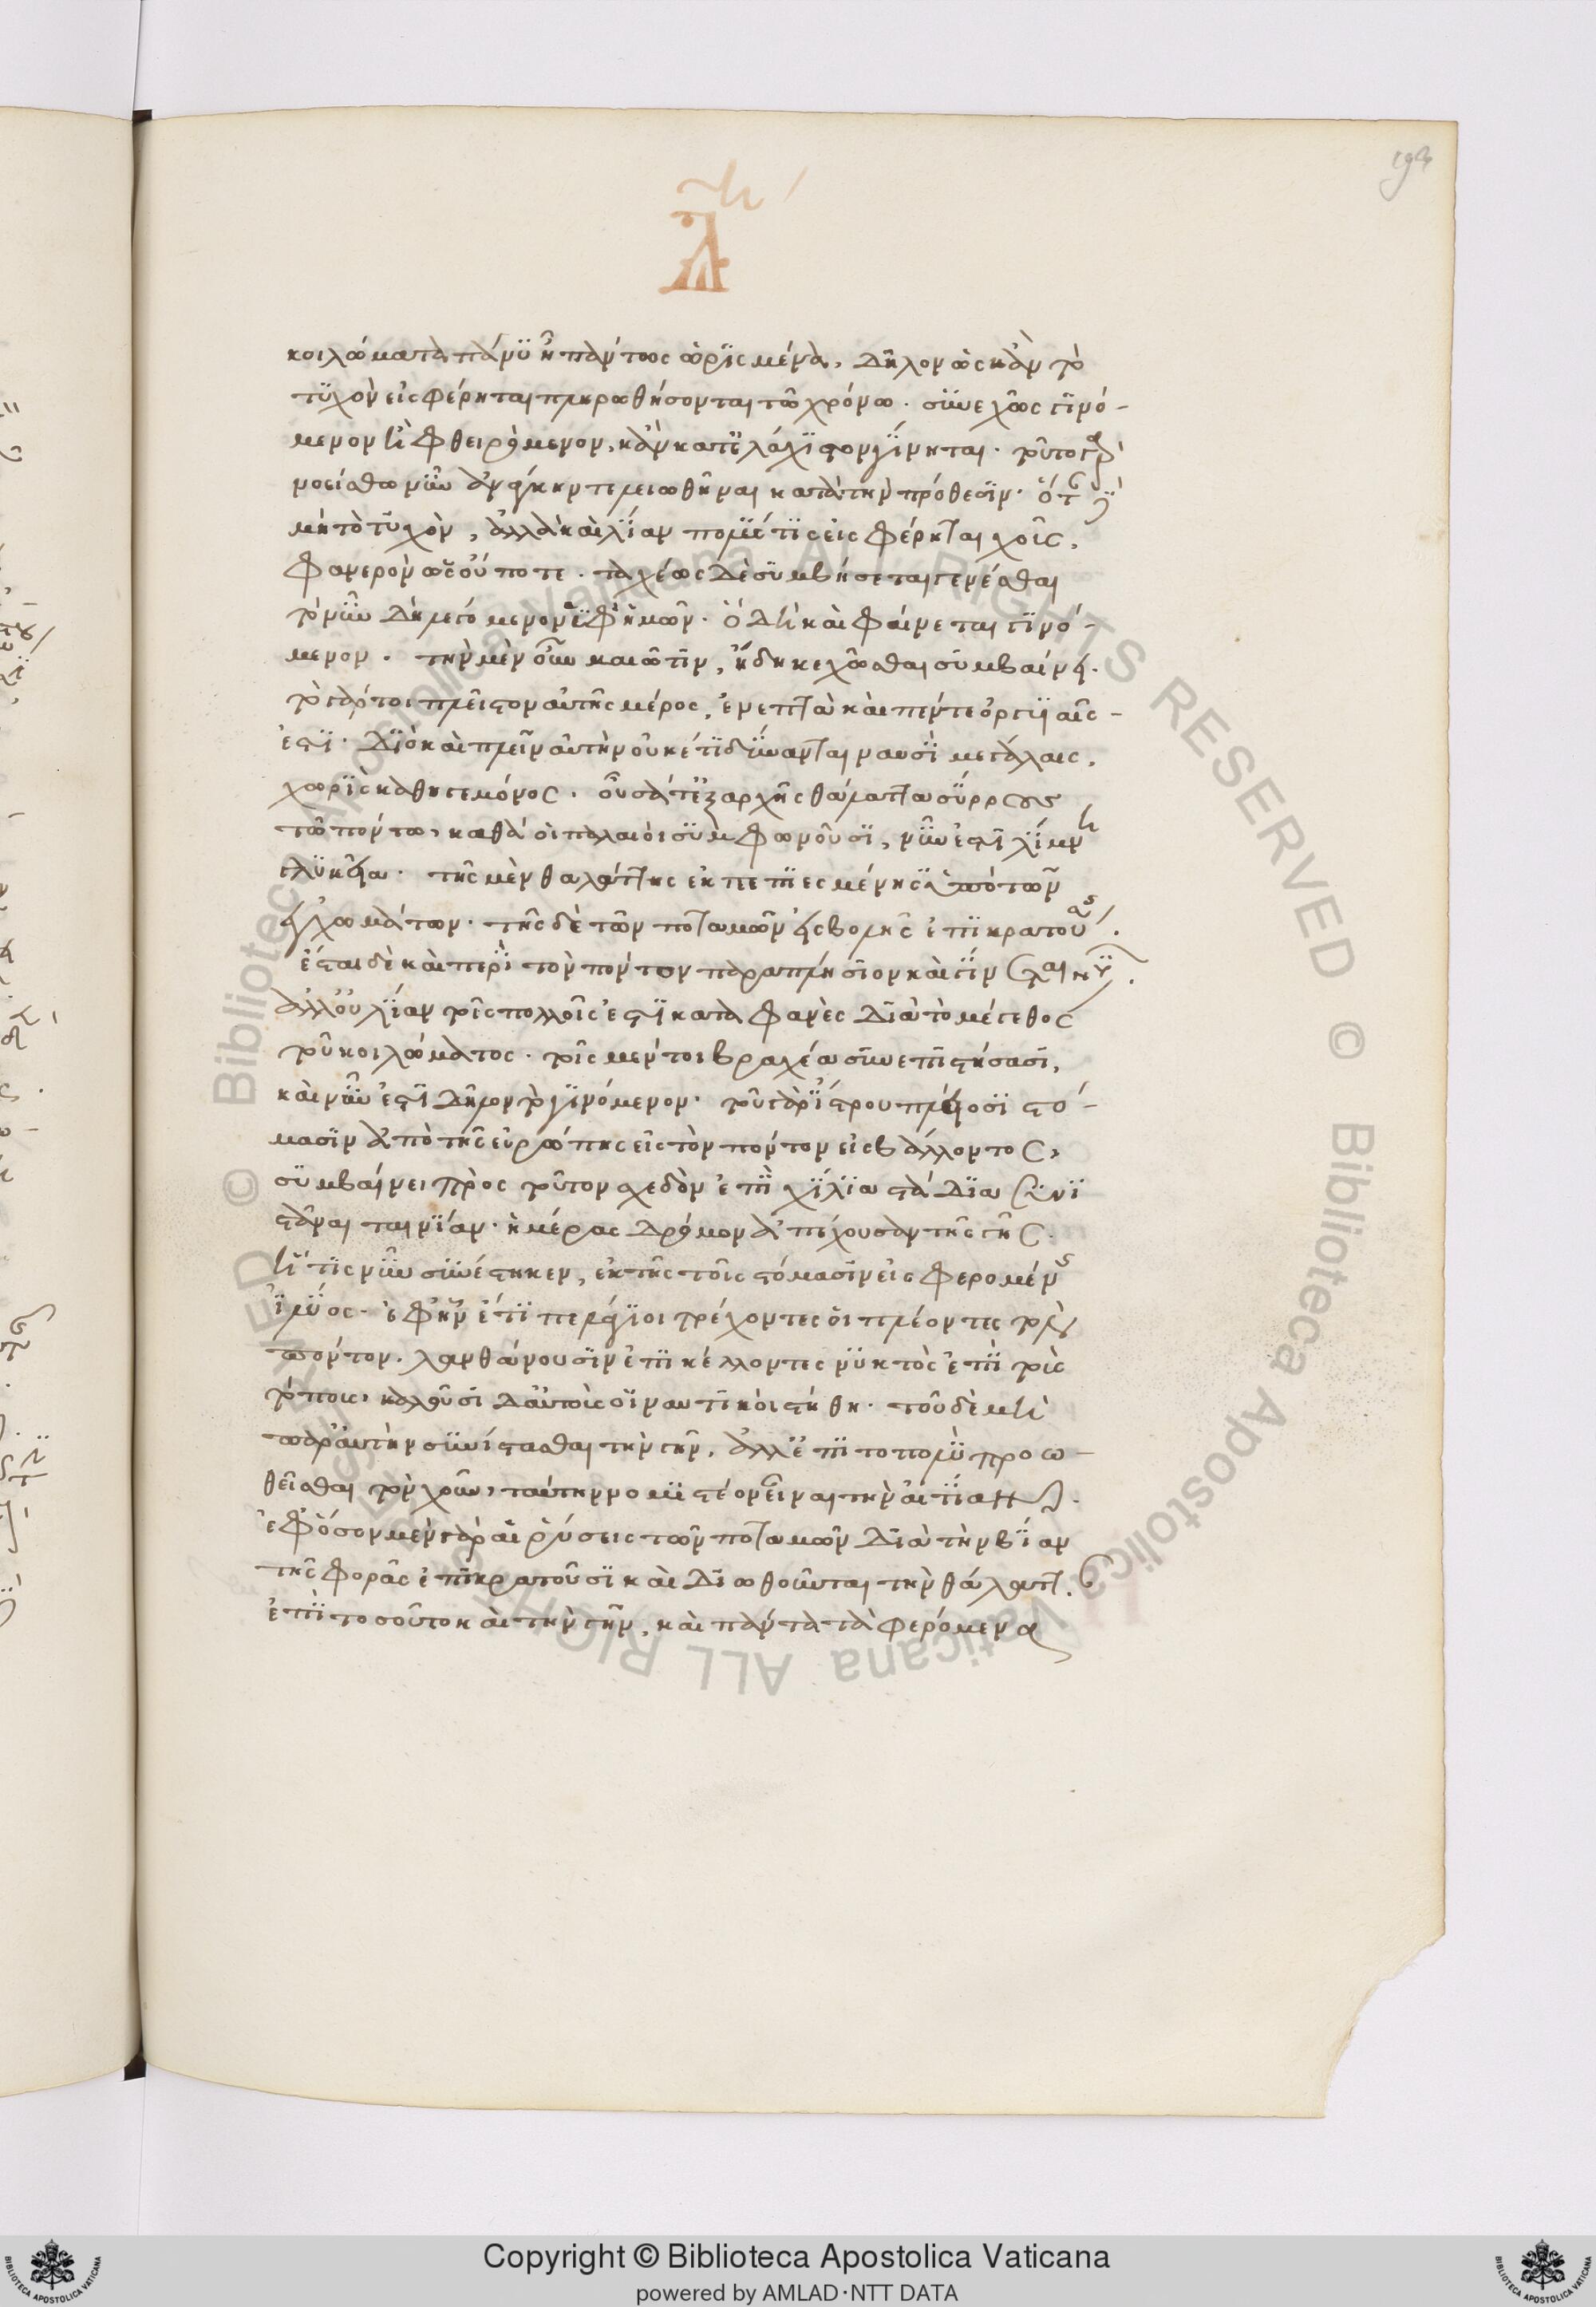 194
Δ
κοιλώματα πάνυ ἢ πάντως ὡρισμένα, δῆλον ὡς κἂν τὸ
τυχὸν εἰσφέρηται πληρωθήσονται τῷ χρόνῳ. συνεχῶς γινό-
μενον ἢ φθειρόμενον, κἂν κατελάχιστον γίνηται. τοῦτο γὰρ
νοείσθω νῦν ἂν
μὴ τὸ τυχὸν, ἀλλὰ καὶ λίαν πολύς τις εἰσφέρηται χοῦς,
φανερὸν ὡς οὔ ποτε. ταχέως δὲ συμβήσεται γενέσθαι
τὸ νῦν δὴ λεγόμενον ὑφ' ἡμῶν. ὃ δὴ καὶ φαίνεται γινό-
μενον. τὴν μὲν οὖν μαιῶτιν, ἤδη κεχῶσθαι συμβαίνει.
τὸ γάρ τοι πλεῖστον αὐτῆς μέρος, ἐν ἑπτὰ καὶ πέντε ὀργυιαῖς
ἐστι. διὸ καὶ πλεῖν αὐτὴν οὐκέτι δύνανται ναυσὶ μεγάλαις,
χωρὶς καθηγεμόνος. οὖσά τ' ἐξ ἀρχῆς θάλαττα σύρρους
τῷ πόντῳ, καθὰ οἱ παλαιοὶ συμφωνοῦσι, νῦν ἐστι λίμνη
γλυκεῖα. τῆς μὲν θαλάττης ἐκπεπιεσμένης ὑπὸ τῶν
χωμάτων. τῆς δὲ τῶν ποταμῶν εἰσβολῆς ἐπικρατούσης.
ἔσται δὲ καὶ περὶ τὸν πόντον παραπλήσιον καὶ γίνεται νῦν.
ἀλλ' οὐ λίαν τοῖς πολλοῖς ἐστι καταφανὲς διὰ τὸ μέγεθος
τοῦ κοιλώματος. τοῖς μέντοι βραχέα συνεπιστήσασι,
καὶ νῦν ἐστι δῆλον τὸ γινόμενον. τοῦ γὰρ ἴστρου πλείοσι στό-
μασιν ἀπὸ τῆς εὐρώπης εἰς τὸν πόντον εἰσβάλλοντος,
συμβαίνει πρὸς τοῦτον σχεδὸν ἐπὶ χίλια στάδια συνι
στάναι ταινίαν. ἡμέρας δρόμον ἀπέχουσαν τῆς γῆς.
ἥτις νῦν συνέστηκεν, ἐκ τῆς τοῖς στόμασιν εἰσφερομένης
ἰλύος. ἐφ' ἣν ἔτι πελάγιοι τρέχοντες οἱ πλέοντες τὸν
πόντον. λανθάνουσιν ἐπικέλλοντες νυκτὸς ἐπὶ τοὺς
τόπους, καλοῦσι δ' αὐτοὺς οἱ ναυτικοὶ στήθη. τοῦ δὲ μὴ
παρ' αὐτὴν συνίστασθαι τὴν γῆν, ἀλλ' ἐπὶ τὸ πολὺ προω-
θεῖσθαι τὸν χοῦν, ταύτην νομιστέον εἶναι τὴν αἰτίαν.
ἐφ' ὅσον μὲν γὰρ αἱ ῥύσεις τῶν ποταμῶν διὰ τὴν βίαν
τῆς φορᾶς ἐπικρατοῦσι καὶ διωθοῦνται τὴν θάλατταν.
ἐπὶ τοσοῦτο καὶ τὴν γῆν, καὶ πάντα τὰ φερόμενα
Copyright © Biblioteca Apostolica Vaticana
powered by AMLAD·NTT DATA
© Biblioteca Apostolica Vaticana ALL RIGHTS RESERVED © Biblioteca Apostolica Vaticana ALL RIGHTS RESERVED